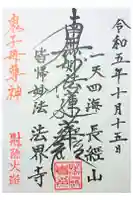 令和五年十月十五日
一天四海 長経山
南無妙法蓮華経
皆帰妙法 法界寺
鬼子母尊神
財除大詔